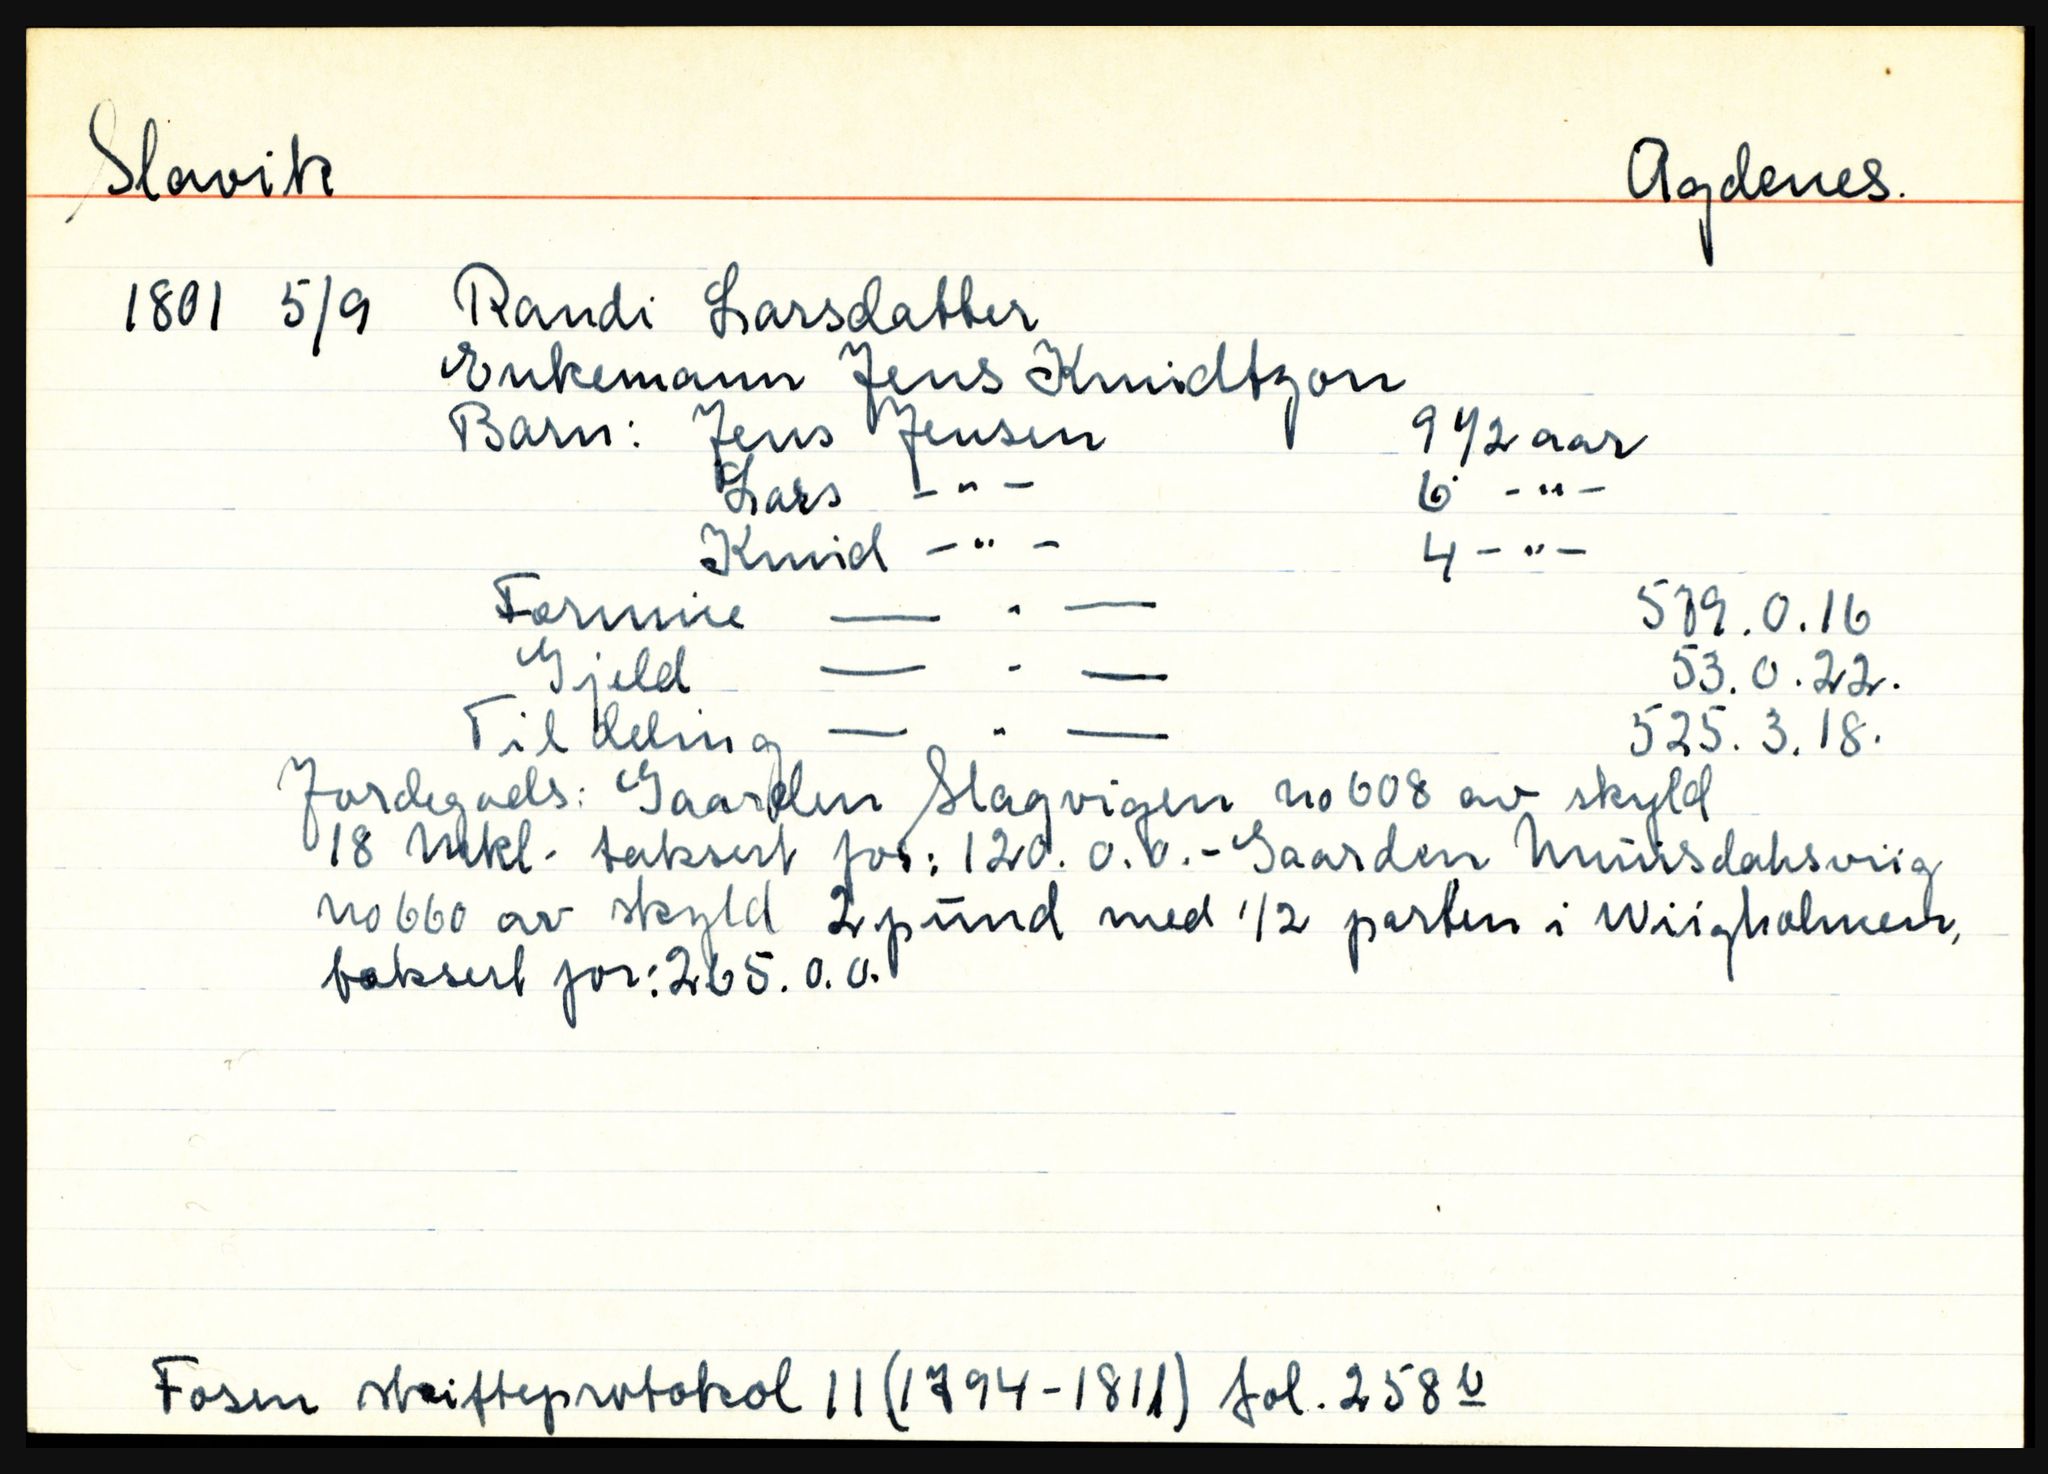 Slavik Agdenes.
1801 5/9 Randi Larsdatter
Enkemann Jens Knudtzon
Barn: Jens Jensen 9 1/2 aar
Lars -"- 6 -"-
Knud -"- 4 -"-
Formue — " — 579.0.16
Gjeld — " — 53.0.22.
Til deling — " — 525.3.18.
Jordegods: Gaarden Slagvigen no 608 av skyld
18 Mkl. taksert for: 120.0.0. - Gaarden
no 660 av skyld 2 pund med 1/2 parten i Wiigholmen,
taksert for: 265.0.0.
Fosen skifteprotokol 11 (1794-1811) fol. 258 b